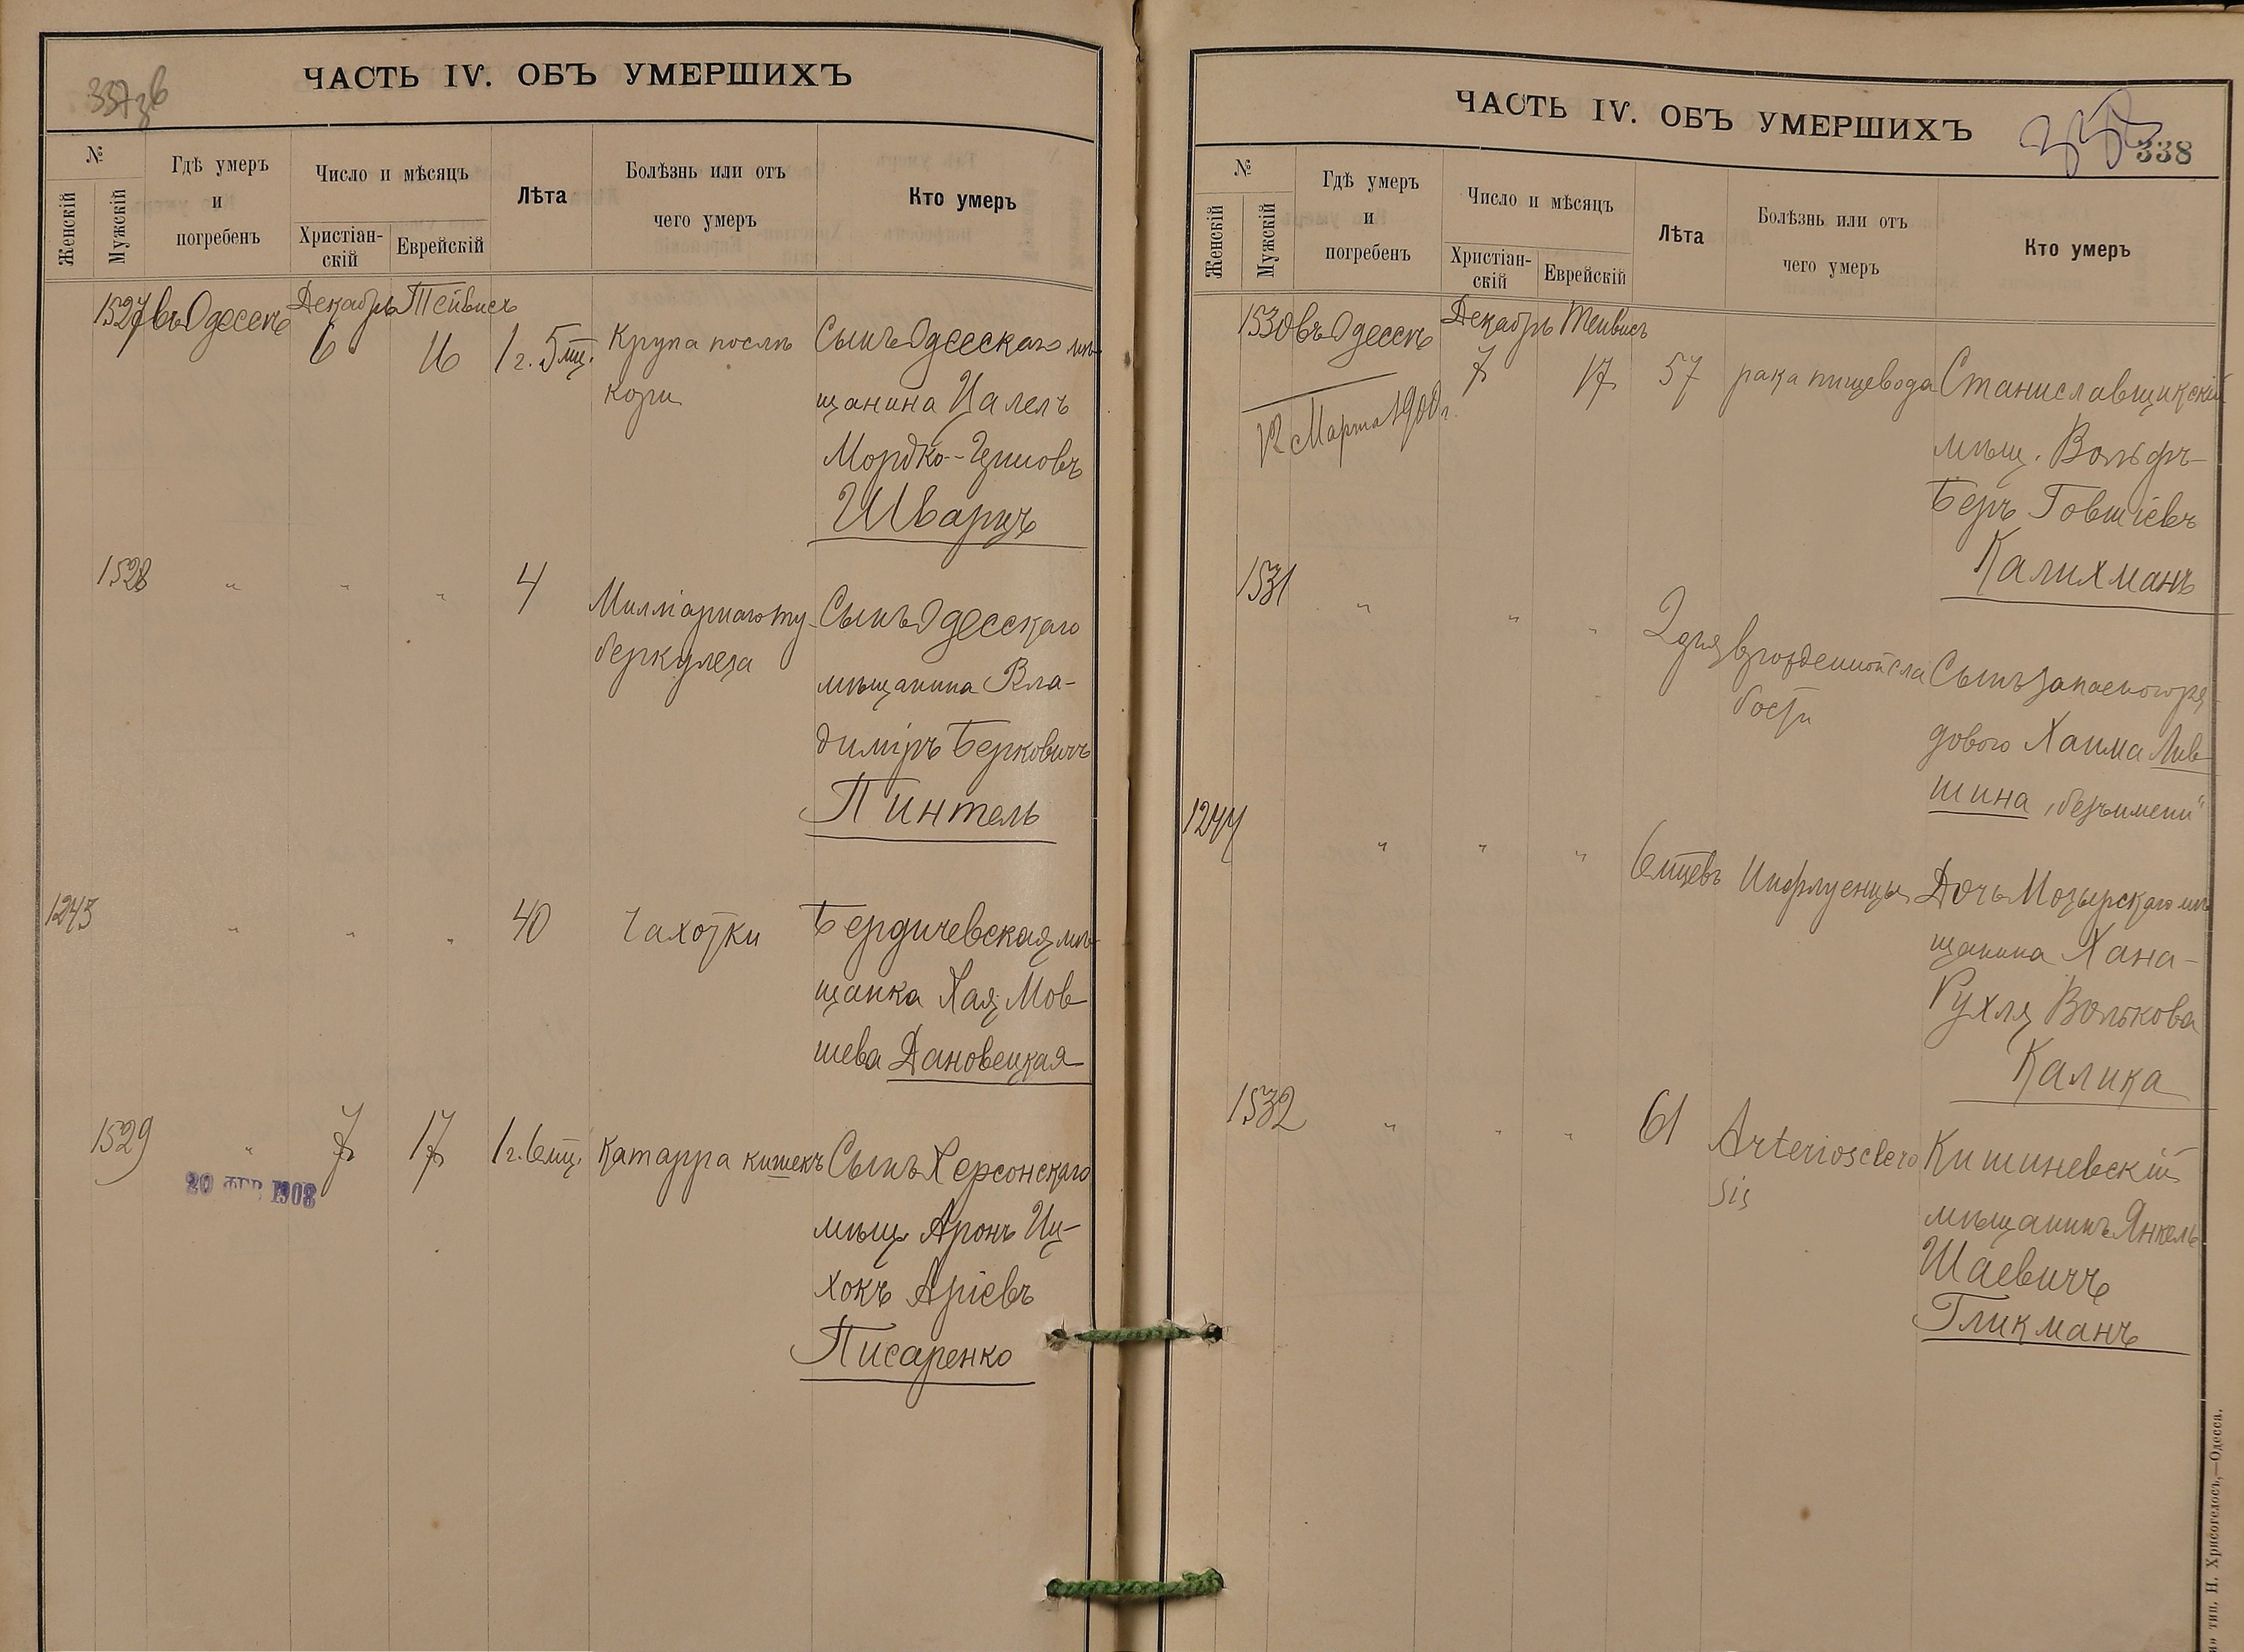 337 об
ЧАСТЬ IV. ОБЪ УМЕРШИХЪ
№
Женскій
Мужскій
Гдѣ умеръ
и
погребенъ
Число и мѣсяцъ
Христіан-
скій
Еврейскій
Лѣта
Болѣзнь или отъ
чего умеръ
Кто умеръ
1527 въ Одессѣ Декабрь Тейвисъ
6 16 1 г. 5 мц. Крупа послѣ Сынъ Одесскаго мѣ-
кори щанина Цалелъ
Мордко-
Шварцъ
1528 " " " 4 Милліарнаго ту- Сынъ Одесскаго
беркулеза мѣщанина Вла-
диміръ Берковичъ
Пинтель
1243 " " " 40 Чахотки Бердичевская мѣ-
щанка Хая Мов-
шева Дановецкая
1529 " 7 17 1 г. 6 мц. Катарра кишекъ Сынъ Херсонскаго
20 ФЕВ 1908
мѣщ. Аронъ Иц-
хокъ Аріевъ
Писаренко
ЧАСТЬ IV. ОБЪ УМЕРШИХЪ
338
338
№
Женскій
Мужскій
Гдѣ умеръ
и
погребенъ
Число и мѣсяцъ
Христіан-
скій
Еврейскій
Лѣта
Болѣзнь или отъ
чего умеръ
Кто умеръ
1530 въ Одессѣ Декабрь Тейвисъ
7 17 57 рака пищевода Станиславщикскій
12 Марта г.
мѣщ. Вольфъ-
Беръ Говшіевъ
Калихманъ
1531 " " " 2 дня врожденной сла Сынъ запасного ря
бости дового Хаима Лив
шина „безъ имени"
1244 " " " 6 мцевъ Инфлуенцы Дочь Мозырскаго мѣ
щанина Хана-
Рухля Волькова
Калика
1532 " " " 61 Arterioscle ro Кишиневскій
sis мѣщанинъ Янкель
Шаевичъ
Гликманъ
тип. Н. Хрисогелосъ,—Одесса.